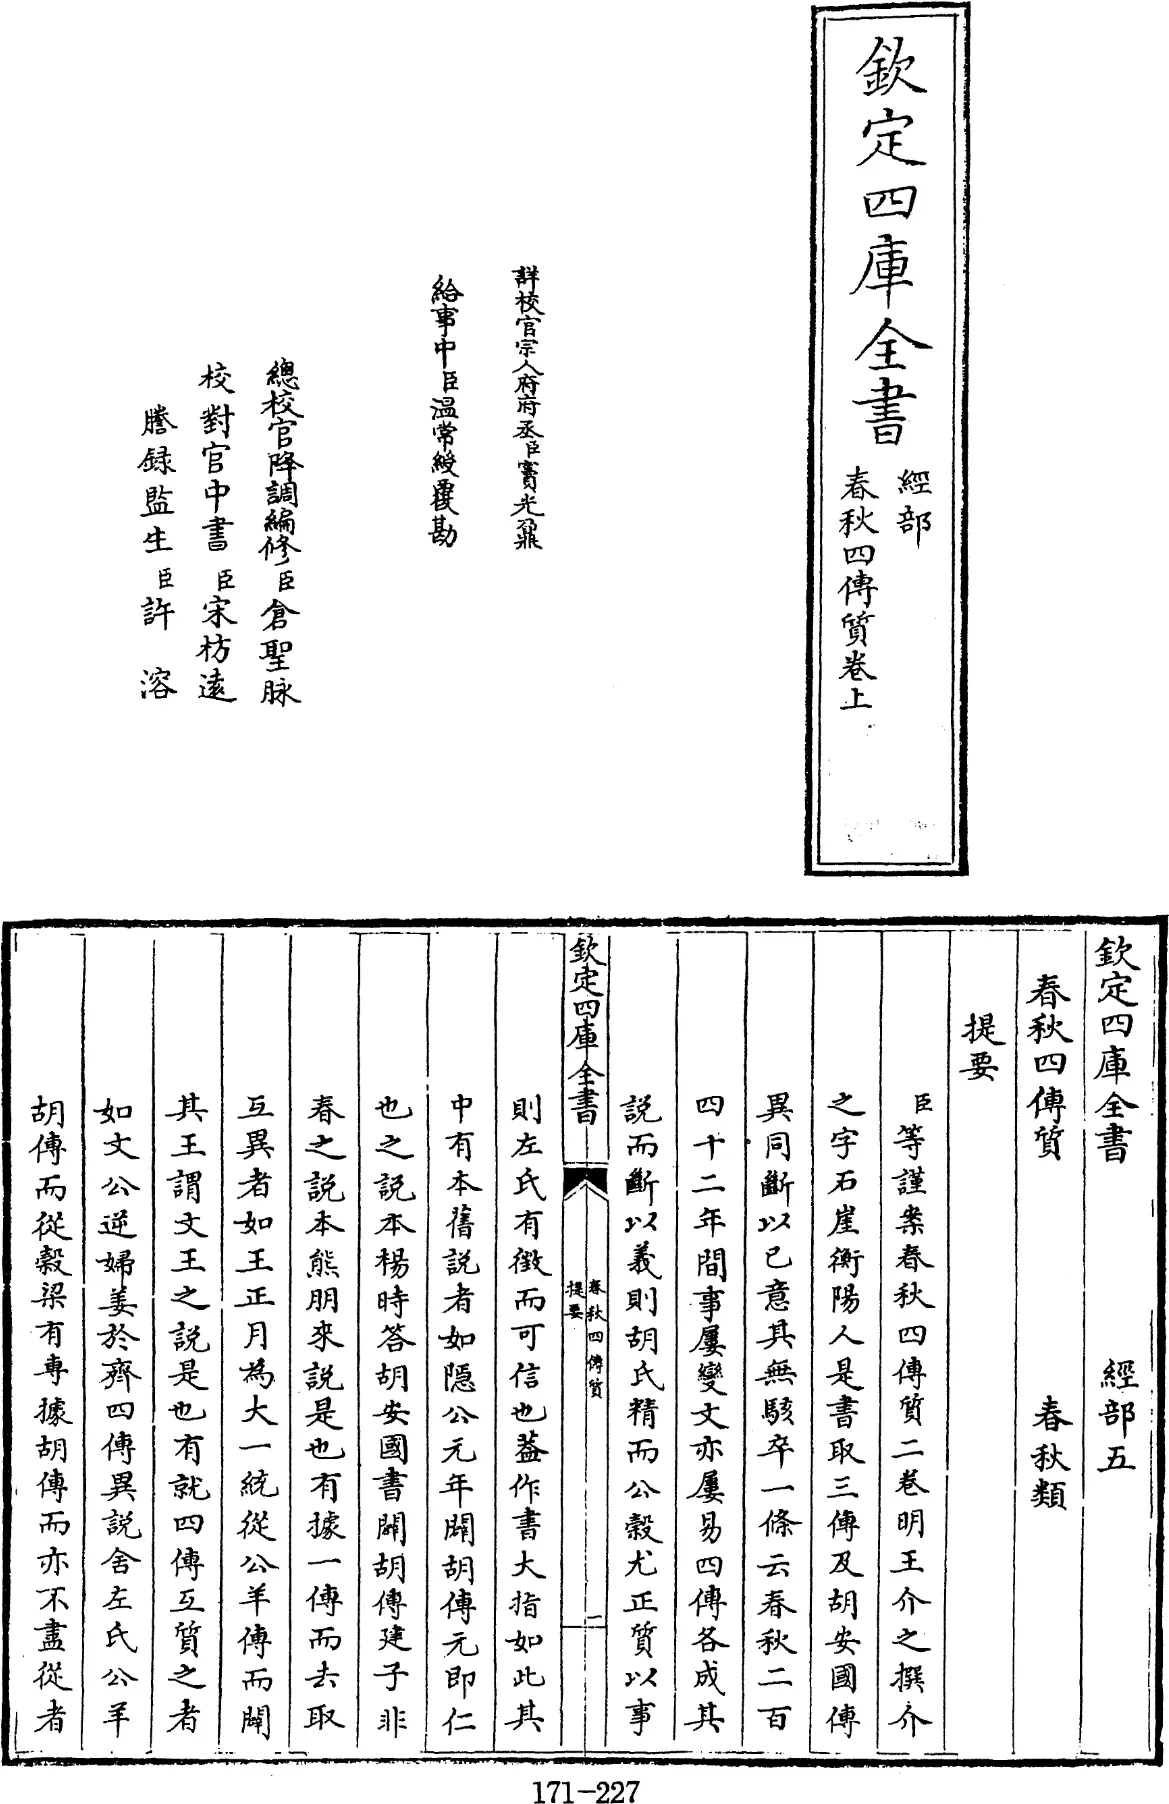 欽定四庫全書
經部
春秋四傳質卷上
詳校官宗人府府丞臣竇光鼐
給事中臣溫常綬覆勘
總校官降調編修臣倉聖脉
校對官中書臣宋枋遠
謄録監生臣許溶
欽定四庫全書 經部五
春秋四傳質 春秋類
提要
臣等謹案春秋四傳質二卷明王介之撰介
之字石崖衡陽人是書取三傳及胡安國傳
異同斷以已意其無駭卒一條云春秋二百
四十二年間事屢變文亦屢易四傳各成其
說而斷以義則胡氏精而公穀尤正質以事
欽定四庫全書
春秋四傳質
提要
二
則左氏有徵而可信也葢作書大指如此其
中有本舊說者如隱公元年闢胡傳元即仁
也之說本楊時答胡安國書闢胡傳建子非
春之說本熊朋來說是也有據一傳而去取
互異者如王正月為大一統從公羊傳而闢
其王謂文王之說是也有就四傳互質之者
如文公逆婦姜於齊四傳異說舍左氏公羊
胡傳而從穀梁有專據胡傳而亦不盡從者
171-227